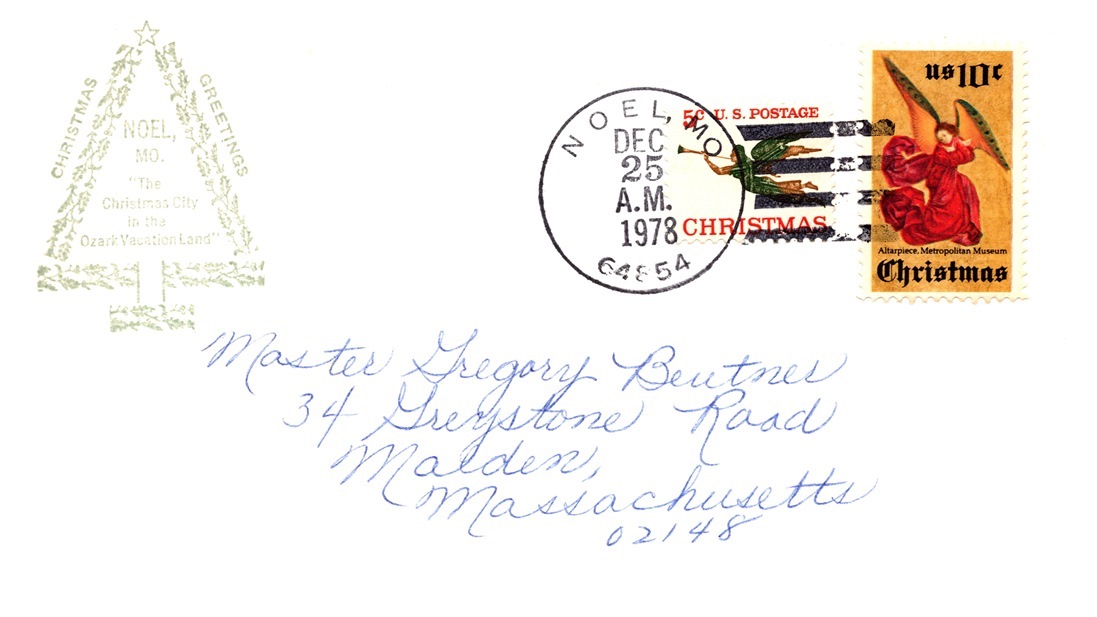 CHRISTMAS
GREETINGS
NOEL,
MO.
"The
Christmas City
in the
Ozark Vacation Land"
NOEL, MO
DEC
25
A.M.
1978
64854
5c U.S. POSTAGE
CHRISTMAS
US 10c
Altarpiece, Metropolitan Museum
Christmas
Master Gregory Beutner
34 Greystone Road
Malden,
Massachusetts
02148